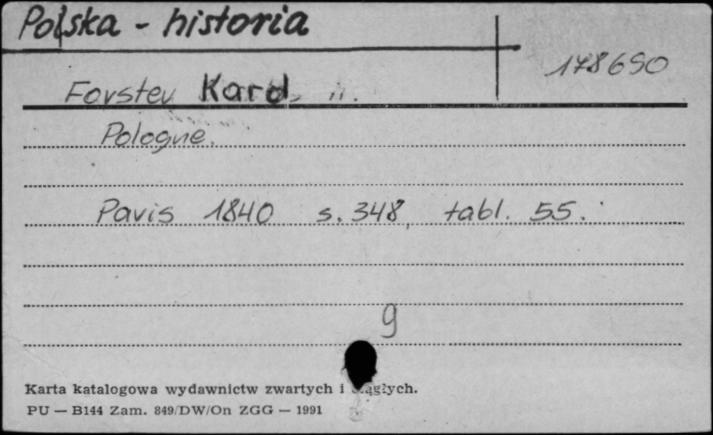 Polska - historia
178690
Forster Kard.
Pologne.
Paris 1840 s. 348, tabl. 55.
9
Karta katalogowa wydawnictw zwartych i ciągłych.
PU — B144 Zam. 849/DW/On ZGG — 1991